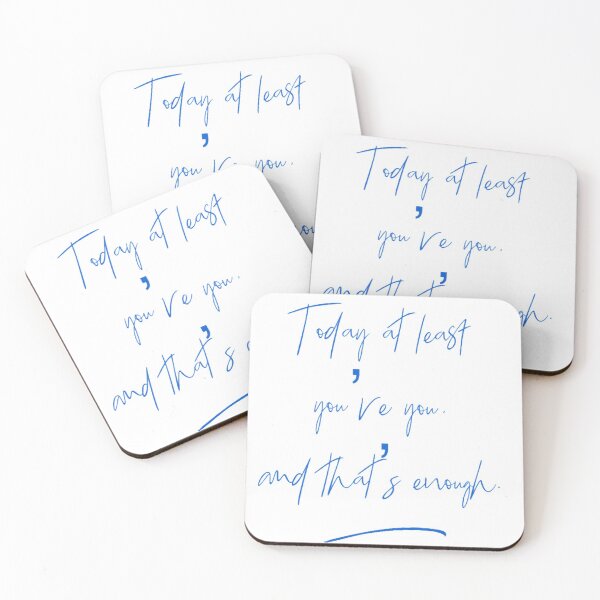 Today at least
you've you.
Today at least
you've you.
Today at least
you've you.
and that's
Today at least
you've you.
and that's enough.